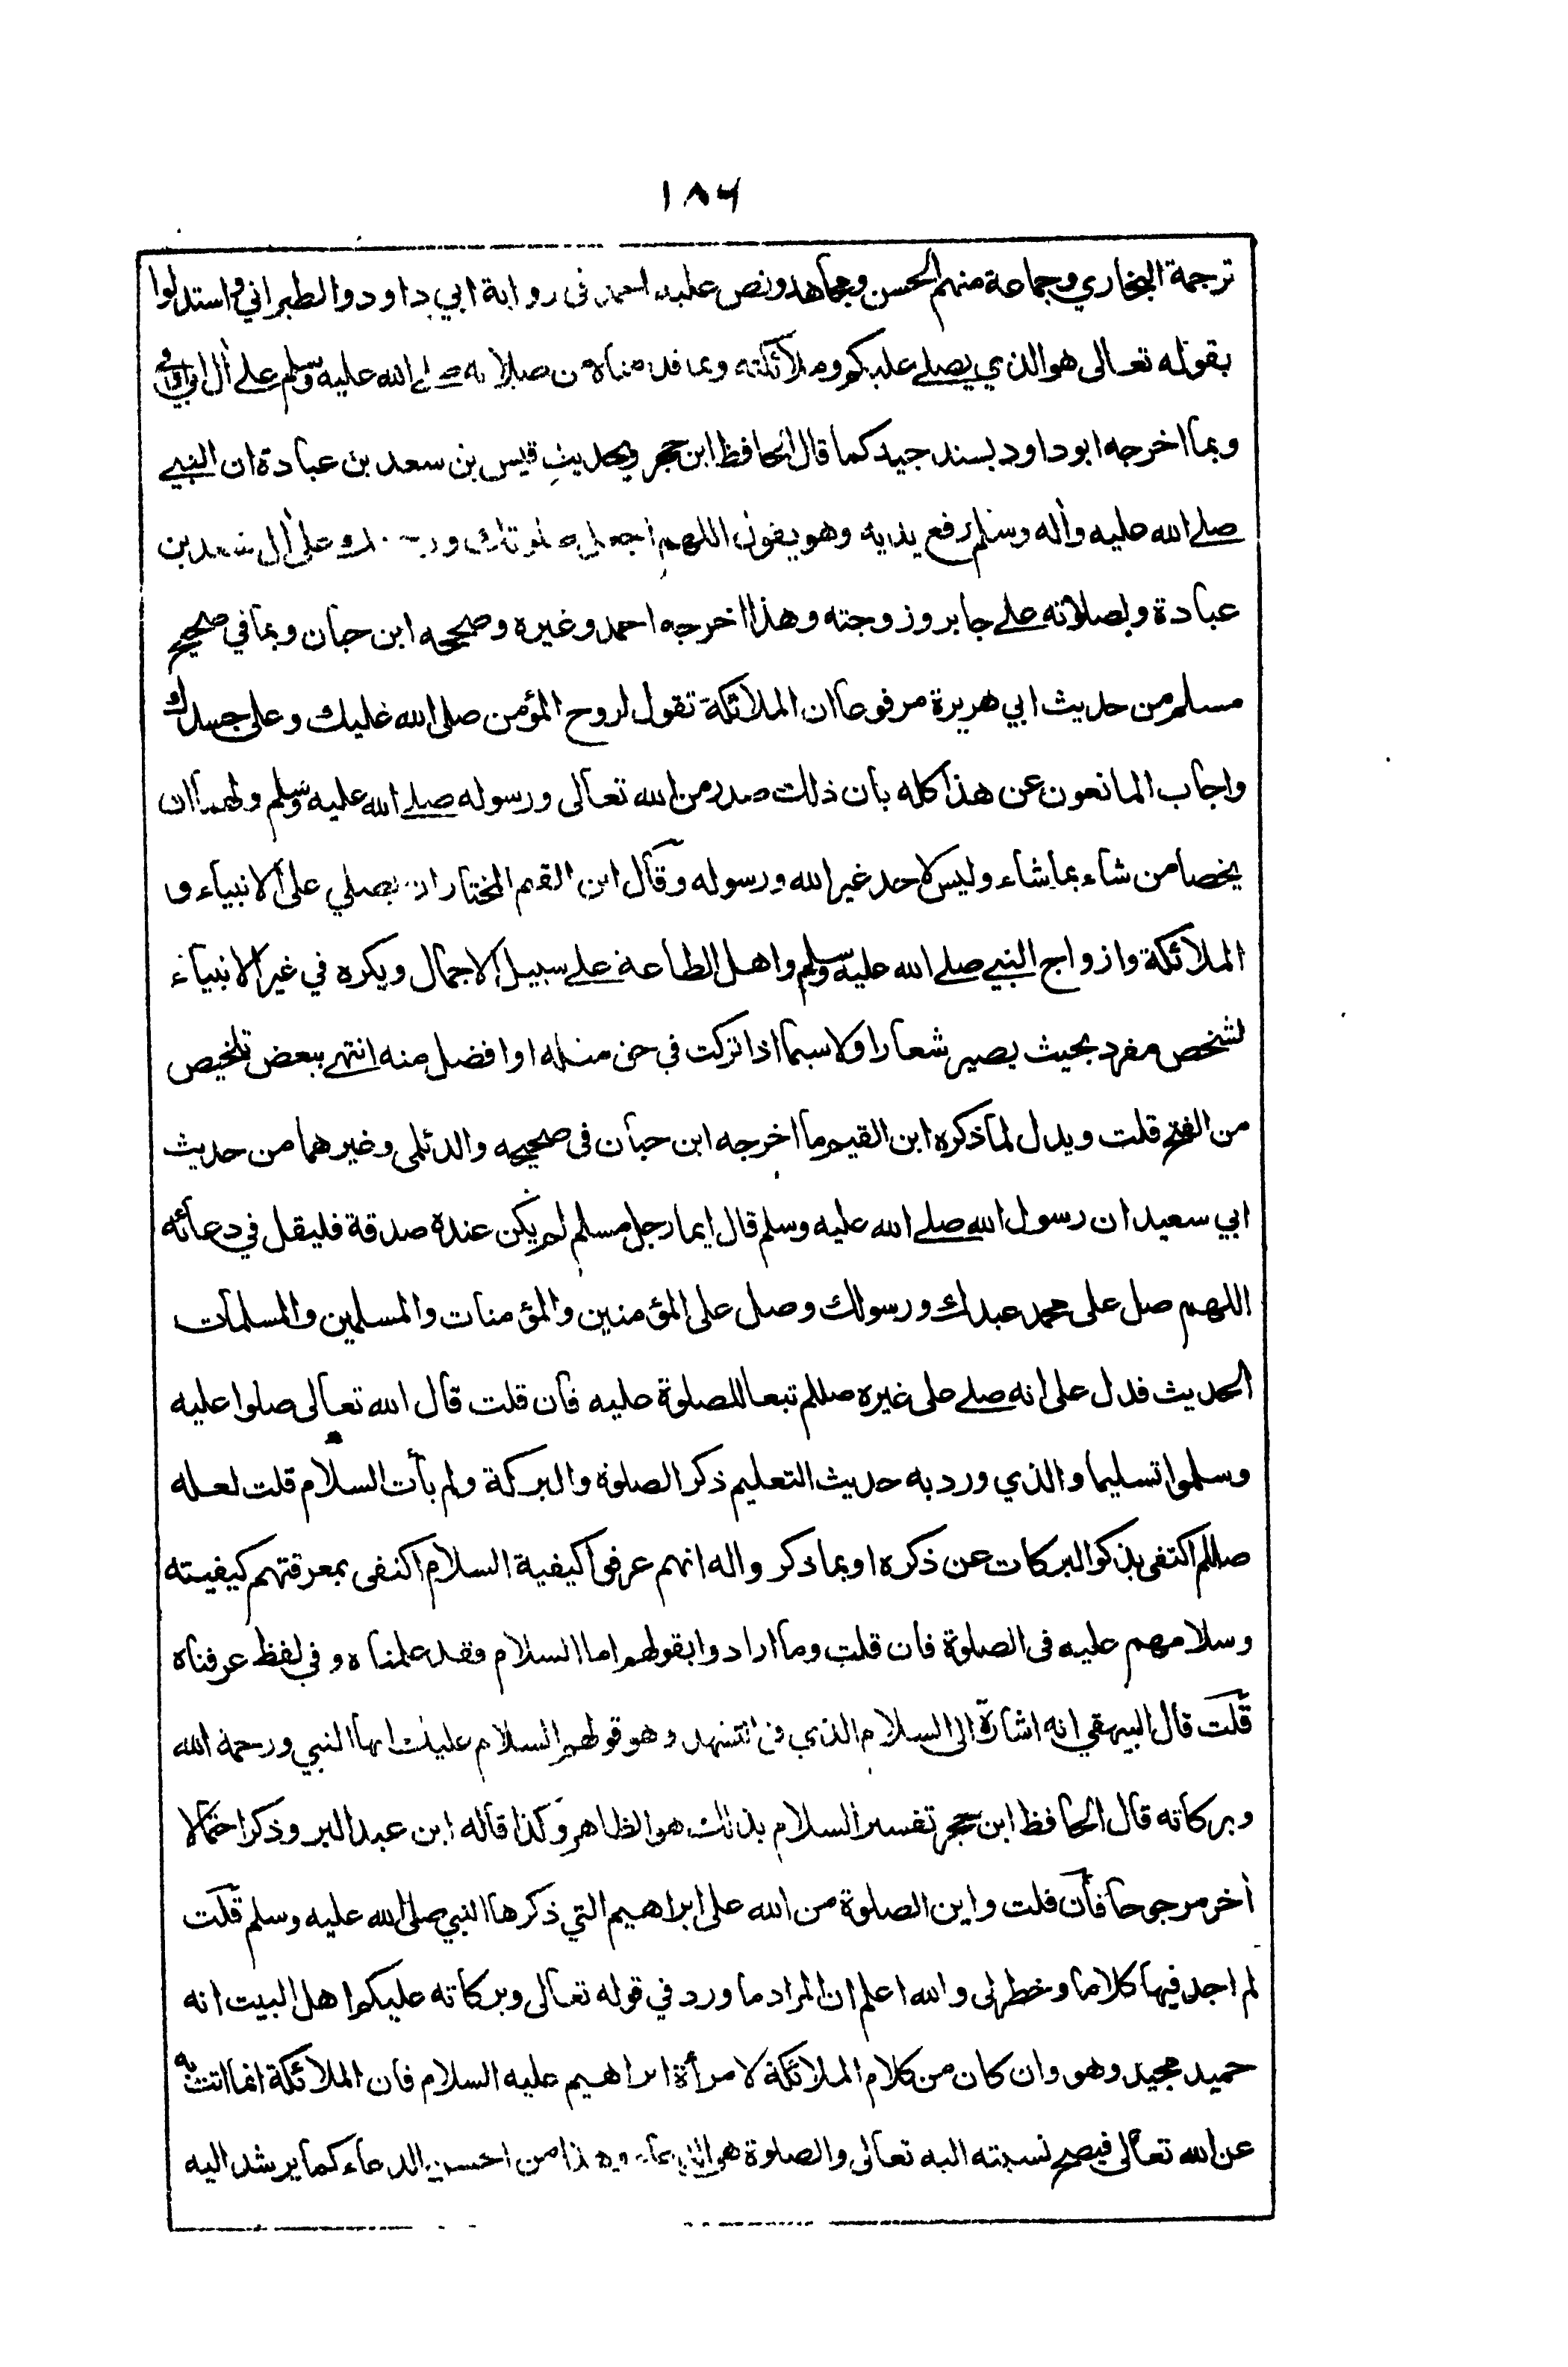 ١٨٦
ترجمة البخاري وجماعة منهم الحسن ومجاهد ونص عليه احمد في رواية ابي داود والطبراني واستدلوا
بقوله تعالى هو الذي يصلي عليكم وملآئكته وبما قدمناه من صلاته صلى الله عليه وسلم على أل ابي اوفى
وبما اخرجه ابو داود بسند جيد كما قال الحافظ ابن حجر وبحديث قيس بن سعد بن عبادة ان النبي
صلى الله عليه وأله وسلم رفع يديه وهو يقول اللهم اجعل صلوتك ورحمتك على أل سعد بن
عبادة وبصلاته على جابر وزوجته وهذا اخرجه احمد وغيره وصححه ابن حبان وبما في صحيح
مسلم من حديث ابي هريرة مرفوعا ان الملائكة تقول لروح المؤمن صلى الله عليك وعلى جسدك
واجاب المانعون عن هذا كله بأن ذلك صدر من الله تعالى ورسوله صلى الله عليه وسلم ولهما ان
يخصا من شاء بما شاء وليس لاحد غير الله ورسوله وقال ابن القيم المختار ان يصلي على الانبياء و
الملائكة وازواج النبي صلى الله عليه وسلم واهل الطاعة على سبيل الاجمال ويكره في غير الانبياء
لشخص مفرد بحيث يصير شعارا ولاسيما اذا تركت في حق مثله او افضل منه انتهى ببعض تلخيص
من الفتح قلت ويدل لما ذكره ابن القيم ما اخرجه ابن حبان في صحيحه والدئلمي وغيرهما من حديث
ابي سعيد ان رسول الله صلى الله عليه وسلم قال ايما رجل مسلم لم يكن عنده صدقة فليقل في دعائه
اللهم صل على محمد عبدك ورسولك وصل على المؤمنين والمؤمنات والمسلمين والمسلمات
الحديث فدل على انه صلى على غيره صللم تبعا للصلوة عليه فأن قلت قال الله تعالى صلوا عليه
وسلموا تسليما والذي ورد به حديث التعليم ذكر الصلوة والبركة ولم يأت السلام قلت لعله
صللم اكتفى بذكر البركات عن ذكره او بما ذكر واله انهم عرفوا كيفية السلام اكتفى بمعرفتهم كيفيته
وسلامهم عليه في الصلوة فان قلت وما ارادوا بقولهم اما السلام فقد علمناه وفي لفظ عرفناه
قلت قال البيهقي انه اشارة الى السلام الذي في التشهد وهو قولهم السلام عليك ايها النبي ورحمة الله
وبركاته قال الحافظ ابن حجر تفسير السلام بذلك هو الظاهر وكذا قاله ابن عبد البر وذكر احتمالا
أخر مرجوحا فأن قلت واين الصلوة من الله على ابراهيم التي ذكرها النبي صلى الله عليه وسلم قلت
لم اجد فيها كلاما وخطر لى والله اعلم ان المراد ما ورد في قوله تعالى وبركاته عليكم اهل البيت انه
حميد مجيد وهو وان كان من كلام الملائكة لامرأة ابراهيم عليه السلام فان الملائكة انما اتت به
عن الله تعالى فيصح نسبته اليه تعالى والصلوة هو الدعاء وهذا من احسن الدعاء كما يرشد اليه